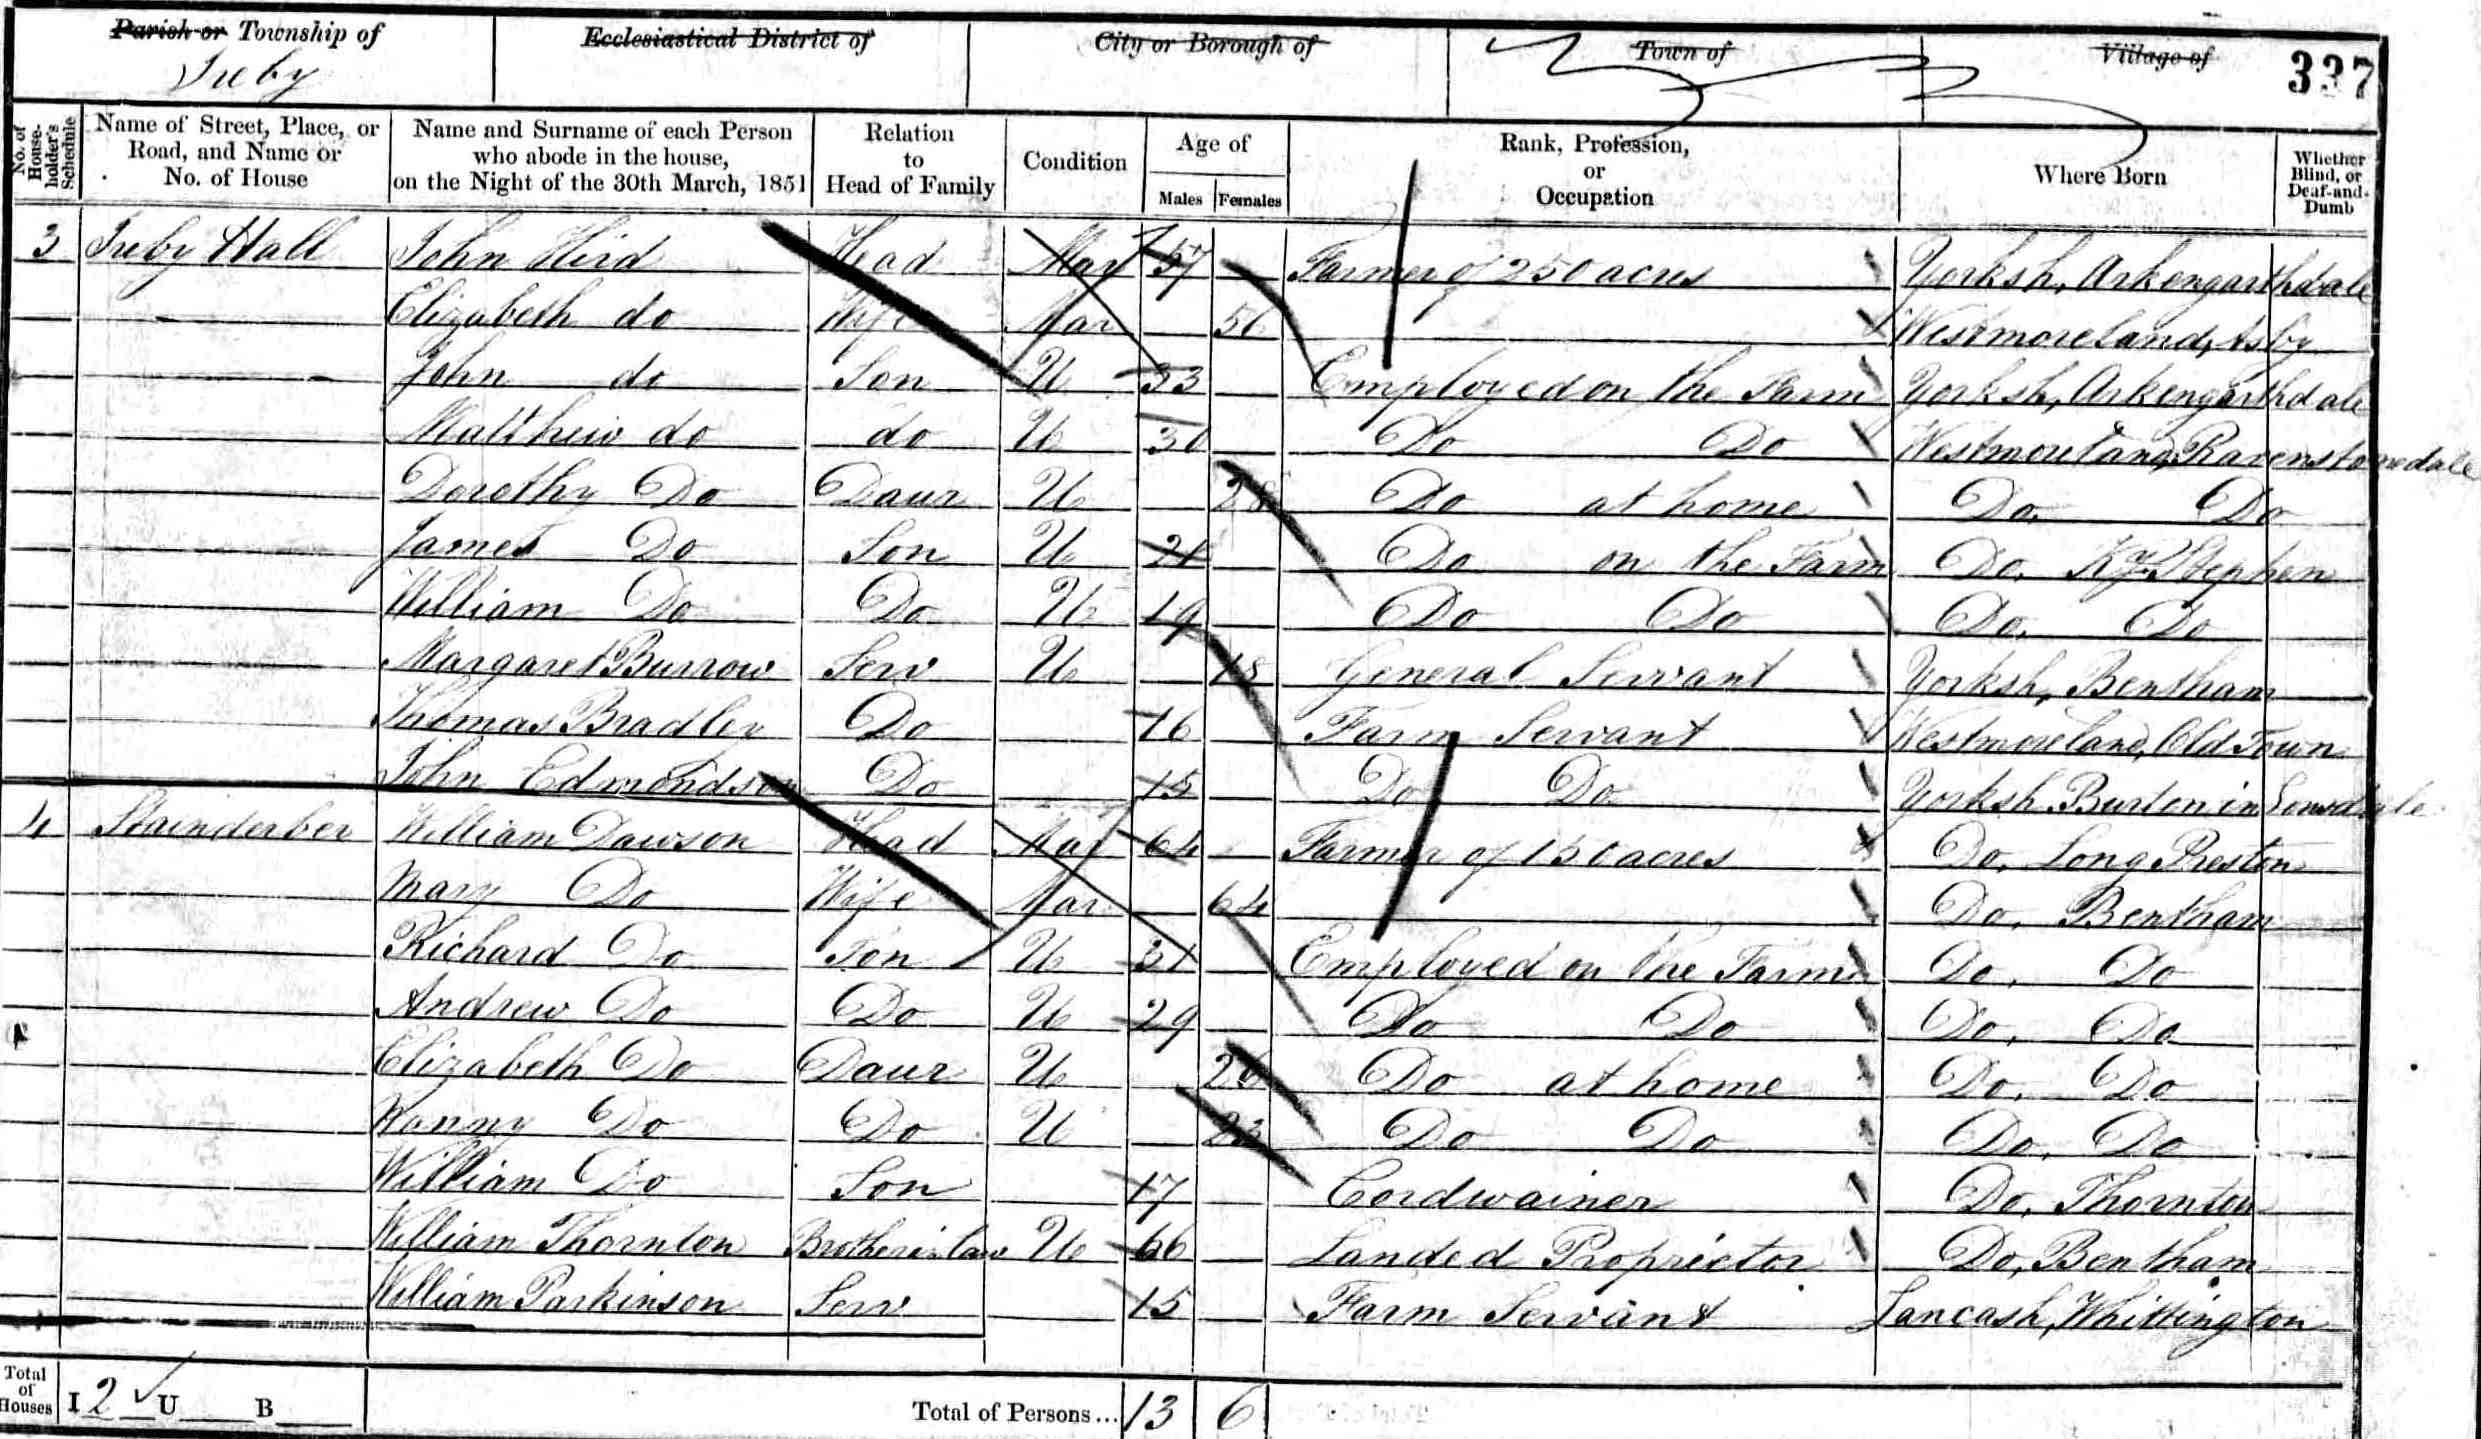 Parish or Township of Ecclesiastical District of City or Borough of Town of Village of 337
Ireby
No. of House-holder's Schedule Name of Street, Place, or Road, and Name or No. of House Name and Surname of each Person who abode in the house, on the Night of the 30th March, 1851 Relation to Head of Family Condition Age of Males Females Rank, Profession, or Occupation Where Born Whether Blind, or Deaf-and-Dumb
3 Ireby Hall John Hird Head Mar 57 Farmer of 250 acres Yorksh, Arkengarthdale
Elizabeth do Wife Mar 56 Westmoreland, Asby
John do Son U 33 Employed on the Farm Yorksh, Arkengarthdale
Matthew do do U 30 Do Do Westmoreland, Ravenstonedale
Dorothy Do Daur U 28 Do at home Do, Do
James Do Son U 21 Do on the Farm Do, Ky Stephen
William Do Do U 19 Do Do Do, Do
Margaret Burrow Serv U 18 General Servant Yorksh, Bentham
Thomas Bradley Do 16 Farm Servant Westmoreland, Old Town
John Edmondson Do 15 Do Do Yorksh Burton in Lonsdale
4 Stainderber William Dawson Head Mar 64 Farmer of 150 acres Do, Long Preston
Mary Do Wife Mar 64 Do, Bentham
Richard Do Son U 31 Employed on the Farm Do, Do
Andrew Do Do U 29 Do Do Do, Do
Elizabeth Do Daur U 26 Do at home Do, Do
Nanny Do Do U 23 Do Do Do, Do
William Do Son 17 Cordwainer Do, Thornton
William Thornton Brother in law U 66 Landed Proprietor Do, Bentham
William Parkinson Serv 15 Farm Servant Lancash, Whittington
Total of Houses I 2 U B Total of Persons... 13 6